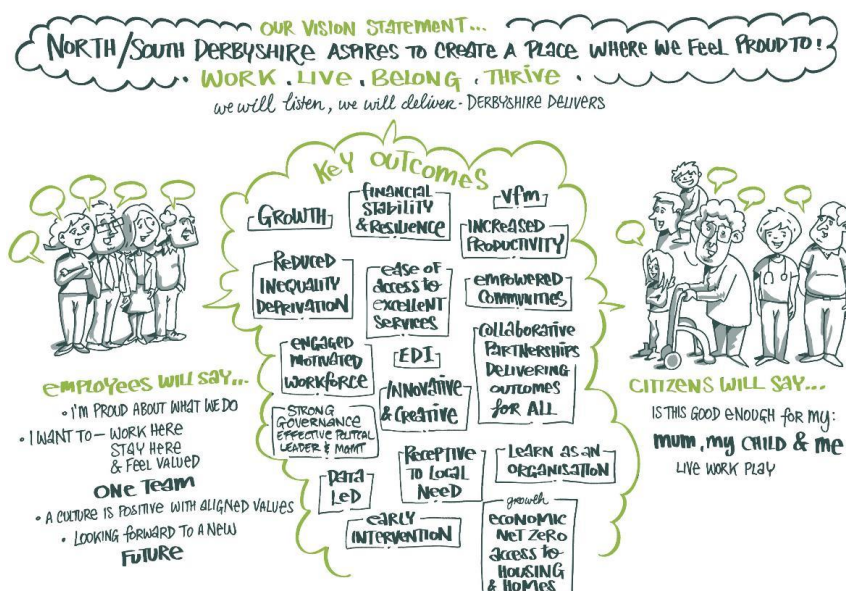 OUR VISION STATEMENT...
NORTH/SOUTH DERBYSHIRE ASPIRES TO CREATE A PLACE WHERE WE FEEL PROUD TO!
WORK . LIVE . BELONG . THRIVE .
we will listen, we will deliver - DERBYSHIRE DELIVERS
KEY OUTCOMES
GROWTH
FINANCIAL
STABILITY
& RESILIENCE
vfm
INCREASED
PRODUCTIVITY
REDUCED
INEQUALITY
DEPRIVATION
ease of
access to
excellent
services
EMPOWERED
COMMUNITIES
ENGAGED
MOTIVATED
WORKFORCE
EDI
COLLABORATIVE
PARTNERSHIPS
DELIVERING
OUTCOMES
for ALL
INNOVATIVE
& CREATIVE
STRONG
GOVERNANCE
EFFECTIVE POLITICAL
LEADER & MGMT
DATA
LED
RECEPTIVE
TO LOCAL
NEED
LEARN AS AN
ORGANISATION
EARLY
INTERVENTION
growth
ECONOMIC
NET ZERO
access to
HOUSING
& HOMES
EMPLOYEES WILL SAY...
• I'M PROUD ABOUT WHAT WE DO
• I WANT TO — WORK HERE
STAY HERE
& FEEL VALUED
ONE TEAM
• A CULTURE IS POSITIVE WITH ALIGNED VALUES
• LOOKING FORWARD TO A NEW
FUTURE
CITIZENS WILL SAY...
IS THIS GOOD ENOUGH FOR MY:
MUM, MY CHILD & ME
LIVE WORK PLAY